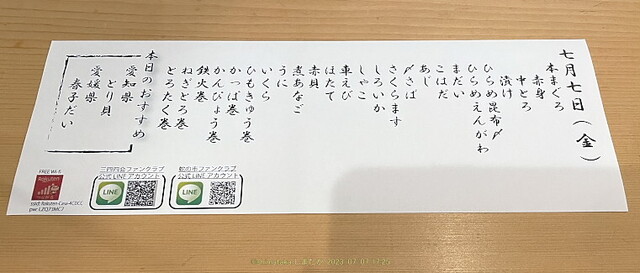 七月七日(金)
本まぐろ
赤身
中とろ
漬け
ひらめ昆布〆
ひらめえんがわ
まだい
こはだ
あじ
〆さば
さくらます
しろいか
しゃこ
車えび
ほたて
赤貝
煮あなご
うに
いくら
ひもきゅう巻
かっぱ巻
かんぴょう巻
鉄火巻
ねぎとろ巻
とろたく巻
本日のおすすめ
愛知県
とり貝
愛媛県
春子だい
FREE Wi-Fi
Rakuten
三四四会ファンクラブ
公式LINEアカウント
LINE
公式LINEアカウント
LINE